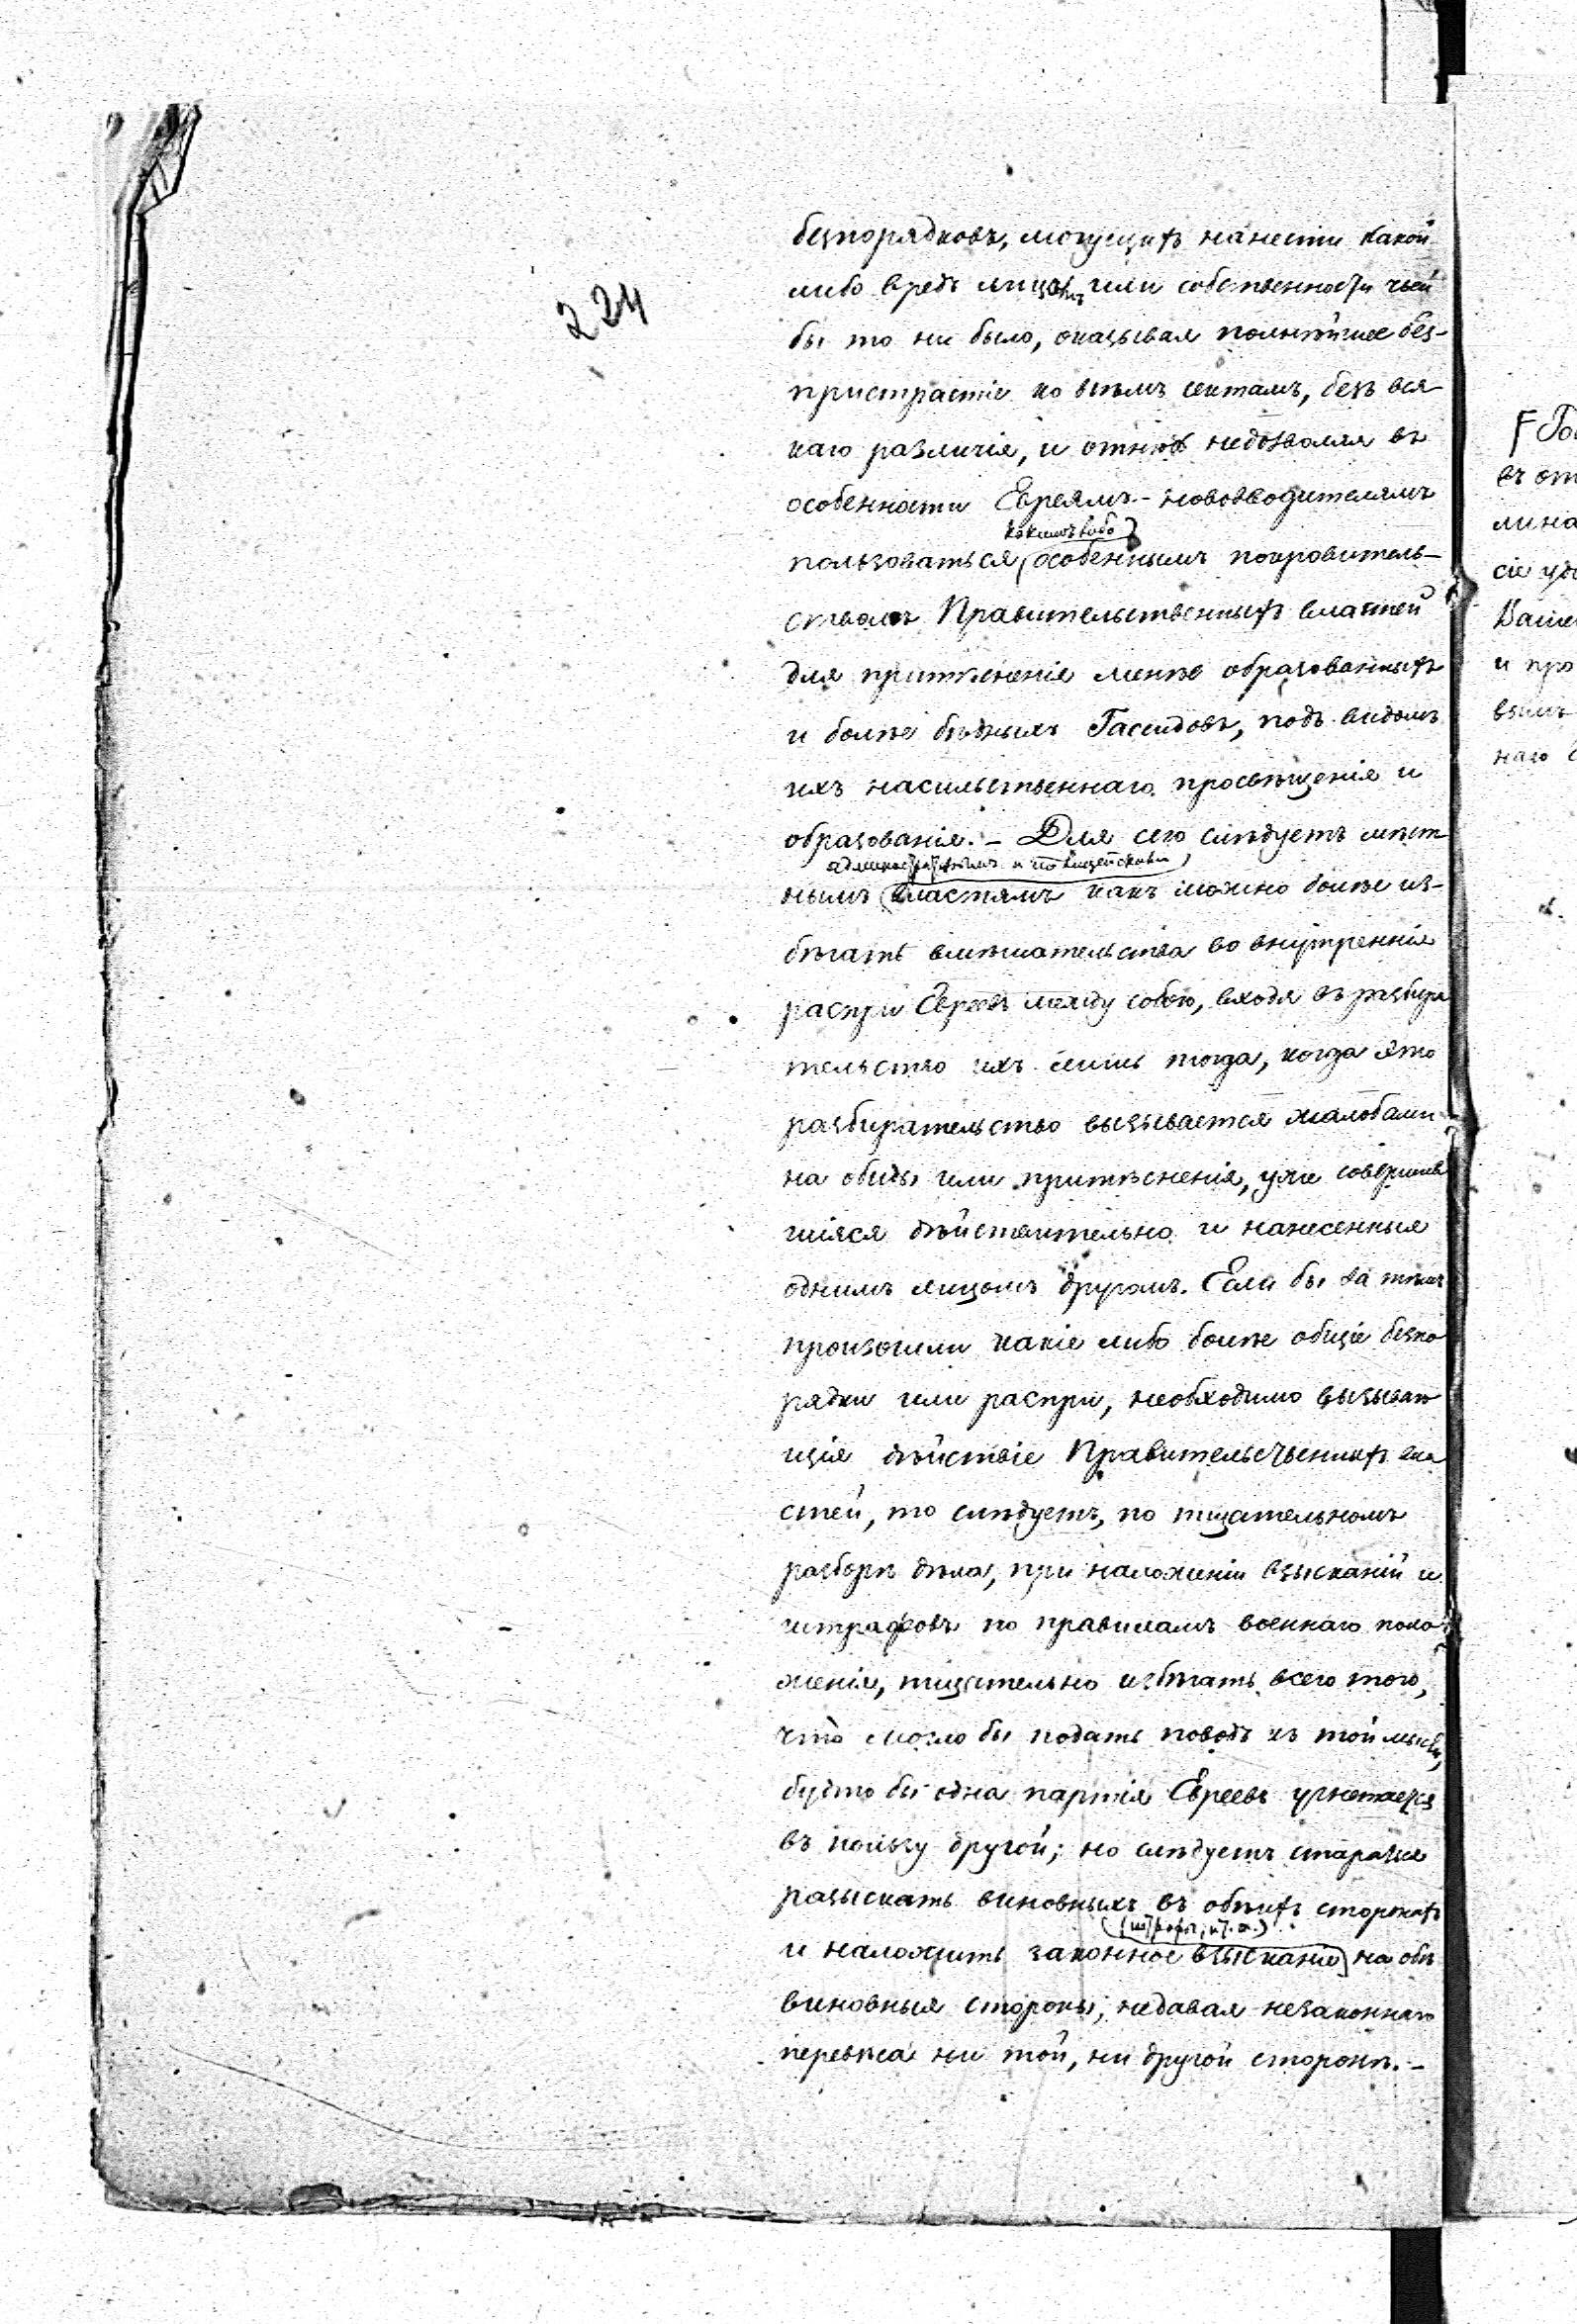 224
безпорядковъ, могущихъ нанести какой
либо вредъ лицамъ или собственности чьей
бы то ни было, оказывая полнѣйшее без-
пристрастіе ко всѣмъ сектамъ, безъ вся
каго различія, и отнюдь недозволяя въ
особенности Евреямъ-нововводителямъ
какимъ либо
пользоваться особеннымъ покровитель-
ствомъ Правительственныхъ властей
для притѣсненія менѣе образованныхъ
и болѣе бѣдныхъ Гасидовъ, подъ видомъ
ихъ насильственнаго просвѣщенія и
образованія. – Для сего слѣдуетъ мѣст
административнымъ и полицейскимъ
нымъ властямъ какъ можно болѣе из-
бѣгать вмѣшательства во внутреннія
распри Евреевъ между собою, входя въ разбира
тельство ихъ лишь тогда, когда это
разбирательство вызывается жалобами
на обиды или притѣсненія, уже совершив
шіяся дѣйствительно и нанесенныя
однимъ лицомъ другому. Если бы за тѣмъ
произошли какіе либо болѣе общіе безпо
рядки или распри, необходимо вызываю
щія дѣйствіе Правительственныхъ вла
стей, то слѣдуетъ, по тщательномъ
разборѣ дѣла, при наложеніи взысканій и
штрафовъ по правиламъ военнаго поло
женія, тщательно избѣгать всего того,
что могло бы подать поводъ къ той мысли,
будто бы одна партія Евреевъ угнетается
въ пользу другой; но слѣдуетъ стараться
разыскать виновныхъ въ обѣихъ сторонахъ
(штрафы, и т. д.)
и наложить законное взысканіе на обѣ
виновныя стороны, недавая незаконнаго
перевѣса ни той, ни другой сторонѣ. –
въ от
лина
сіе
и про
наго